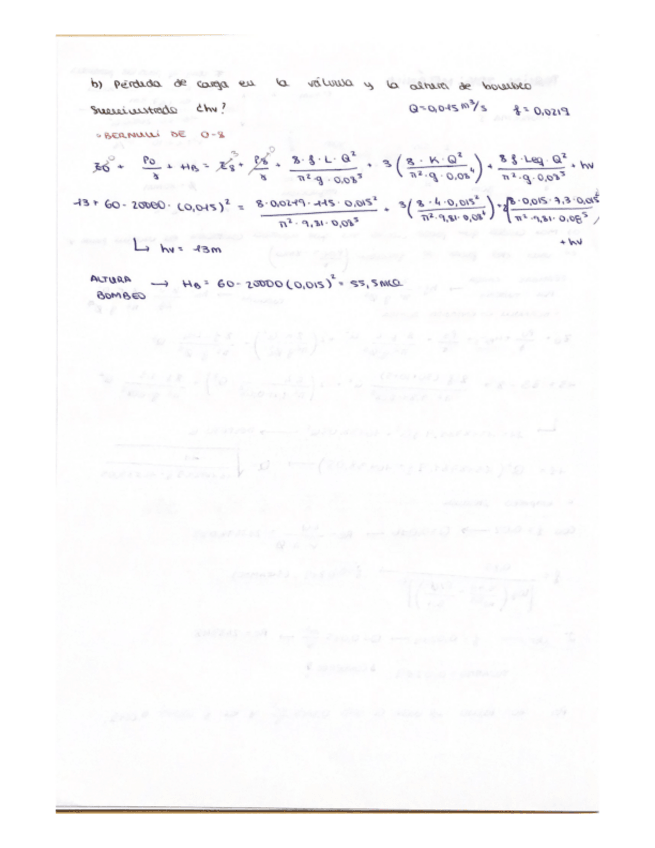 b) Pérdida de carga en la válvula y la altura de bombeo
suministrado ¿hv? Q=0,015 m³/s f = 0,0219
→ BERNULLI DE 0-8
z0 + P0/γ + HB = z8 + P8/γ + 8·f·L·Q²/π²·g·0,08⁵ + 3(8·K·Q²/π²·g·0,08⁴) + 8f·Leq·Q²/π²·g·0,08⁵ + hv
13 + 60 - 20000·(0,015)² = 8·0,0219·115·0,015²/π²·9,81·0,08⁵ + 3(8·4·0,015²/π²·9,81·0,08⁴)
+ hv
↳ hv = 13m
ALTURA BOMBEO → HB = 60 - 20000(0,015)² = 55,5 mca